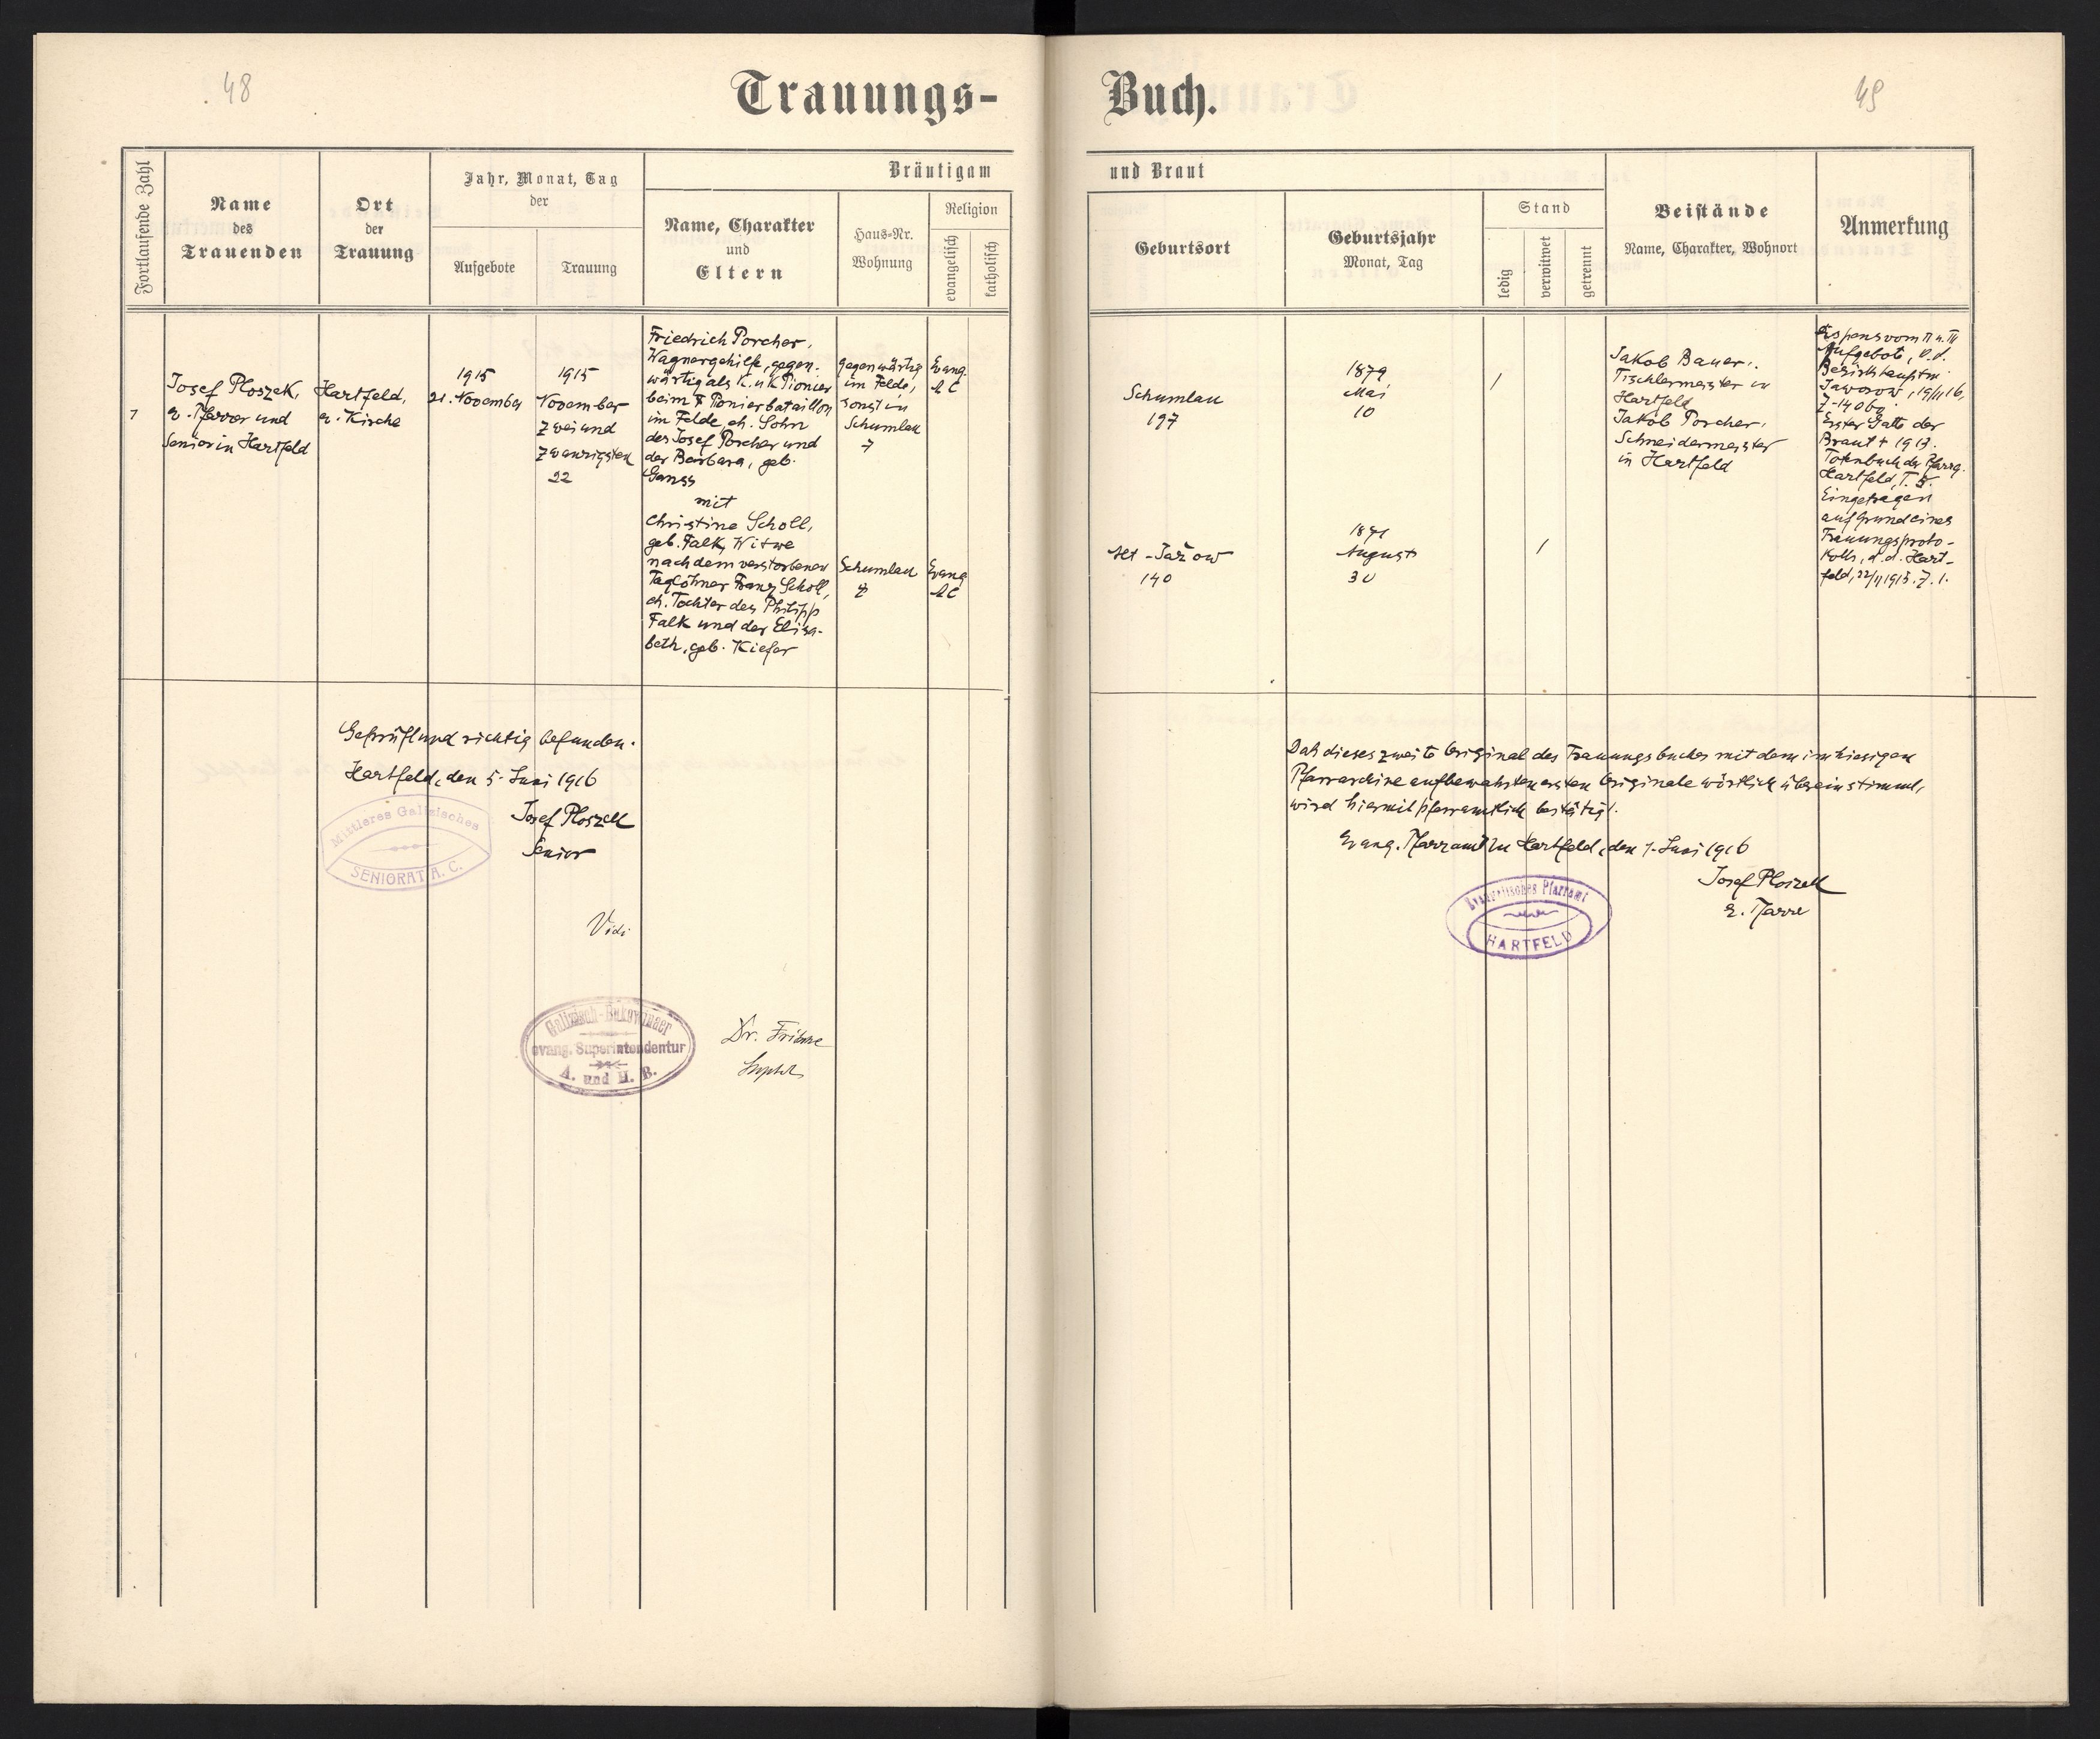 48
Trauungs-
Fortlaufende Zahl
Name
des
Trauenden
Ort
der
Trauung
Jahr, Monat, Tag
der
Aufgebote
Trauung
Bräutigam
Name, Charakter
und
Eltern
Haus-Nr.
Wohnung
Religion
evangelisch
katholisch
1
Josef Ploszek,
e. Pfarrer und
Senior in Hartfeld
Hartfeld,
e. Kirche
1915
21. November
1915
November
zwei und
zwanzigsten
22
Friedrich Porcher,
Wagnergehilfe, gegen-
wärtig als k. u. k. Pionier
beim Pionierbataillon
im Felde, eh. Sohn
des Josef Porcher und
der Barbara, geb.
Ganss
mit
Christine Scholl,
geb. Falk, Witwe
nach dem verstorbenen
Taglöhner Franz Scholl,
eh. Tochter des Philipp
Falk und der Elisa-
beth, geb. Kiefer
gegenwärtig
im Felde,
sonst in
Schumlau
7
Schumlau
Evang.
A C
Evang
A C
Geprüft und richtig befunden.
Hartfeld, den 5. Juni 1916
Josef Ploszek
Senior
Mittleres Galizisches
SENIORAT A. C.
Vidi
Galizisch-Bukowinaer
evang. Superintendentur
A. und H. B.
Dr. Fritsche
Suptdt
Buch.
49
und Braut
Geburtsort
Geburtsjahr
Monat, Tag
Stand
ledig
verwitwet
getrennt
Beistände
Name, Charakter, Wohnort
Anmerkung
Schumlau
197
1879
Mai
10
/
Alt-Jažow
140
1871
August
30
/
Jakob Bauer,
Tischlermeister in
Hartfeld
Jakob Porcher,
Schneidermeister
in Hartfeld
Dispens vom II u. III
Aufgebote, d. d.
Bezirkshauptm.
Jaworow, 19/11
Erster Gatte der
Braut + 1913.
Totenbuch der Pfarrg.
Hartfeld, T. 5.
Eingetragen
auf Grund eines
Trauungsproto-
kolls, d. d. Hart-
feld, 22/11 1915. Z. 1.
Daß dieses zweite Original des Trauungsbuches mit dem im hiesigen
Pfarrarchive aufbewahrten ersten Originale wörtlich übereinstimmt,
wird hiermit pfarramtlich bestätigt.
Evang. Pfarramt zu Hartfeld, den 1. Juni 1916
Josef Ploszek
e. Pfarrer
Evangelisches Pfarramt
HARTFELD